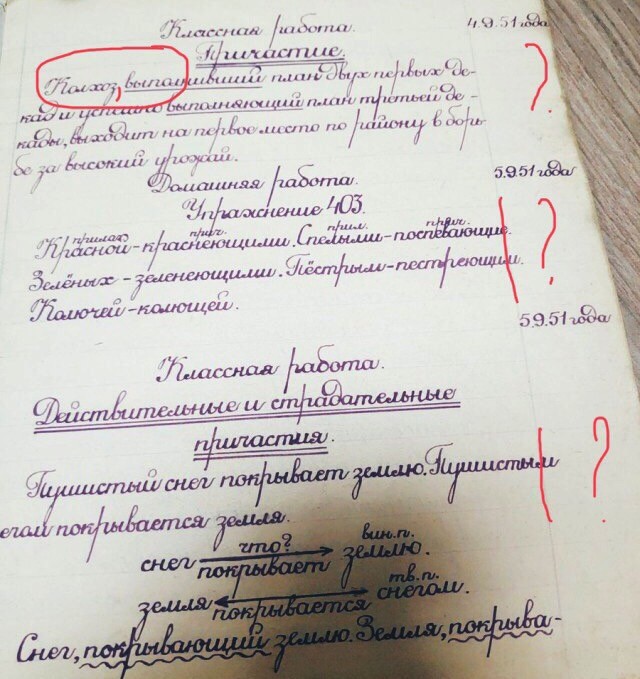 Классная работа. 4.9.51 года
Причастие.
Колхоз, выполнивший план двух первых де-
кад и успешно выполняющий план третьей де-
кады, выходит на первое место по району в борь-
бе за высокий урожай.
5.9.51 года
Домашняя работа.
Упражнение 403.
прилаг. прич. прил. прич.
Красной - краснеющими. Спелыми - поспевающие.
Зелёных - зеленеющими. Пёстрым - пестреющим.
Колючей - колющей.
5.9.51 года
Классная работа.
Действительные и страдательные
причастия.
Пушистый снег покрывает землю. Пушистым
снегом покрывается земля.
что? вин.п.
снег покрывает землю.
тв.п.
земля покрывается снегом.
Снег, покрывающий землю. Земля, покрыва-
?
?
?